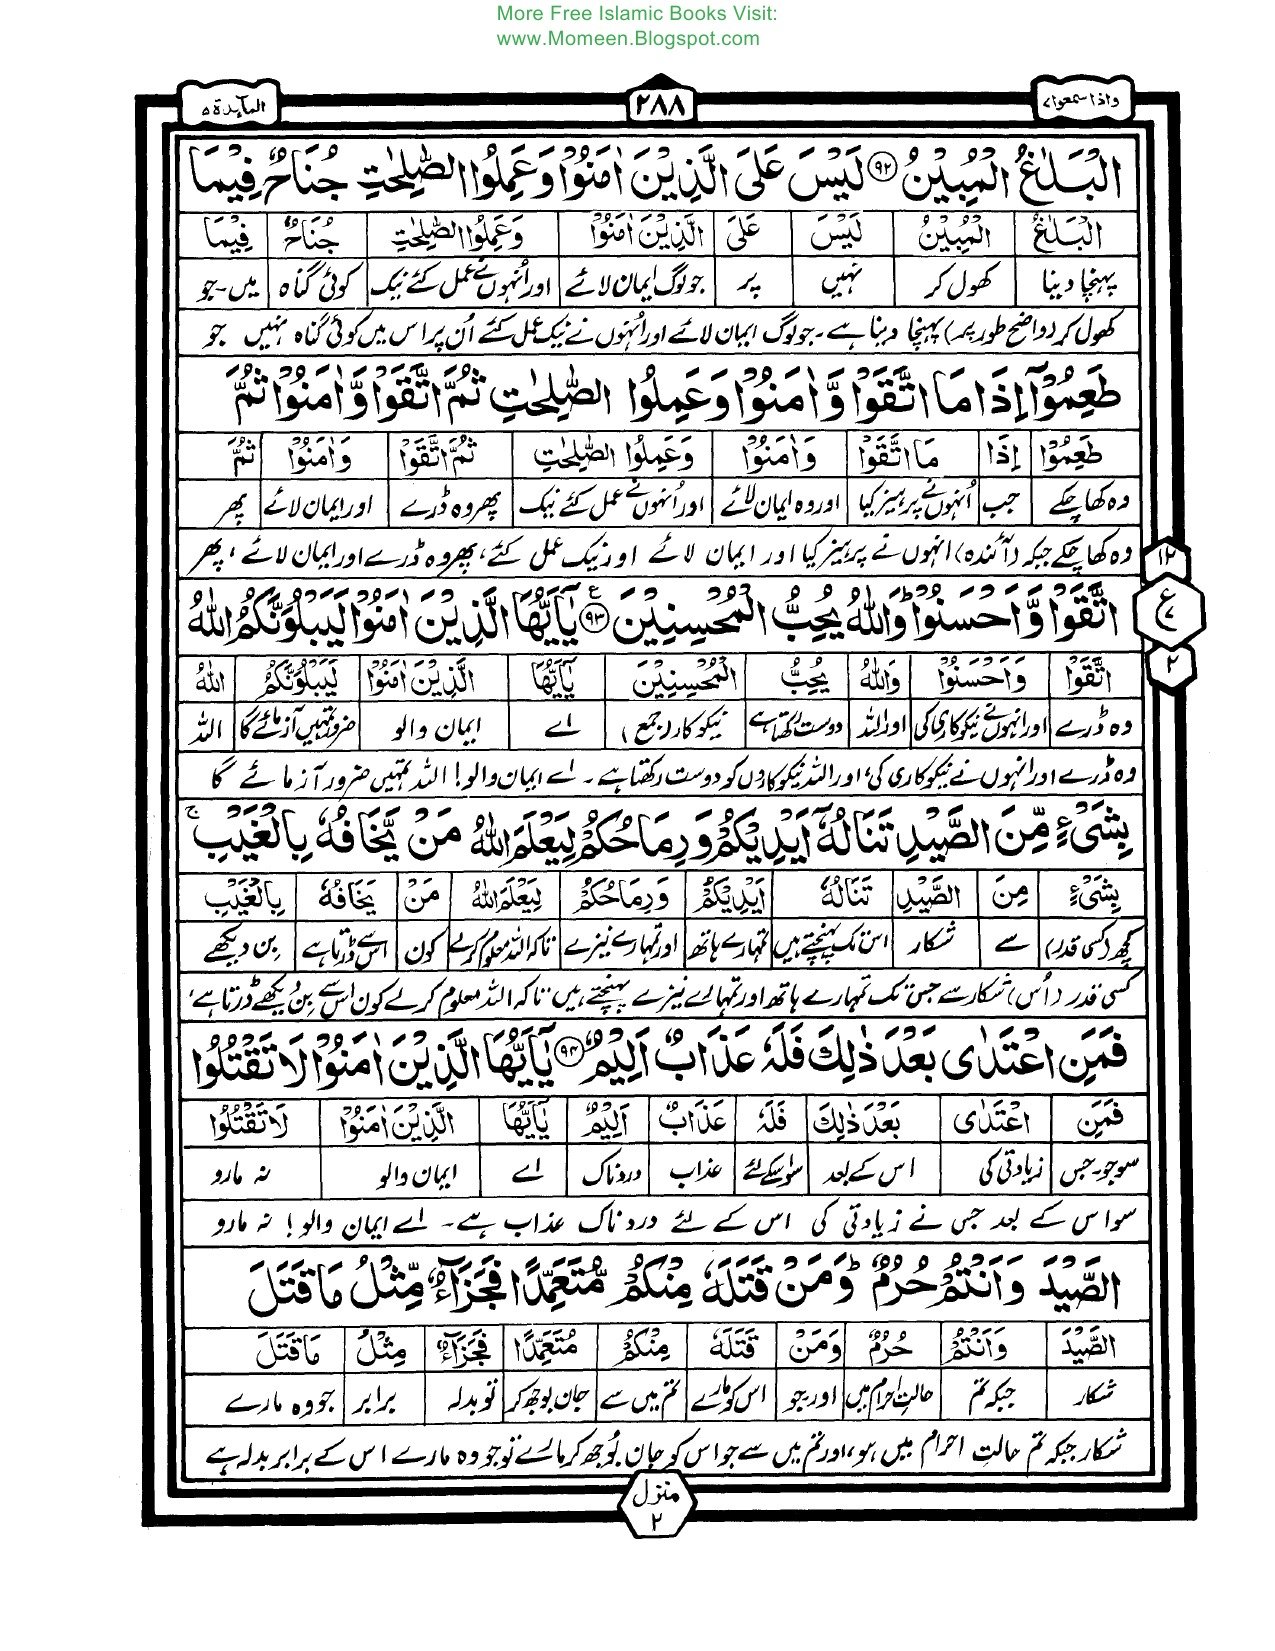 More Free Islamic Books Visit:
www.Momeen.Blogspot.com
واذا سمعوا ۷
۲۸۸
المآىِٕدة ۵
الْبَلٰغُ الْمُبِیْنُ ۹۲ لَیْسَ عَلَی الَّذِیْنَ اٰمَنُوْا وَعَمِلُوا الصّٰلِحٰتِ جُنَاحٌ فِیْمَا
الْبَلٰغُ الْمُبِیْنُ لَیْسَ عَلَی الَّذِیْنَ اٰمَنُوْا وَعَمِلُوا الصّٰلِحٰتِ جُنَاحٌ فِیْمَا
پہنچا دینا کھول کر نہیں پر جو لوگ ایمان لائے اور اُنہوں نے عمل کئے نیک کوئی گناہ میں - جو
کھول کر (واضح طور پر) پہنچا دینا ہے - جو لوگ ایمان لائے اور اُنہوں نے نیک عمل کئے اُن پر اس میں کوئی گناہ نہیں جو
طَعِمُوْۤا اِذَا مَا اتَّقَوْا وَّاٰمَنُوْا وَعَمِلُوا الصّٰلِحٰتِ ثُمَّ اتَّقَوْا وَّاٰمَنُوْا ثُمَّ
طَعِمُوْۤا اِذَا مَا اتَّقَوْا وَاٰمَنُوْا وَعَمِلُوا الصّٰلِحٰتِ ثُمَّ اتَّقَوْا وَاٰمَنُوْا ثُمَّ
وہ کھا چکے جب اُنہوں نے پرہیز کیا اور وہ ایمان لائے اور اُنہوں نے عمل کئے نیک پھر وہ ڈرے اور ایمان لائے پھر
وہ کھا چکے جبکہ (آئندہ) انہوں نے پرہیز کیا اور ایمان لائے اور نیک عمل کئے، پھر وہ ڈرے اور ایمان لائے، پھر
۱۲
ع
۷
۲
اتَّقَوْا وَّاَحْسَنُوْا ؕ وَاللّٰهُ یُحِبُّ الْمُحْسِنِیْنَ ۹۳ ع یٰۤاَیُّهَا الَّذِیْنَ اٰمَنُوْا لَیَبْلُوَنَّكُمُ اللّٰهُ
اتَّقَوْا وَاَحْسَنُوْا وَاللّٰهُ یُحِبُّ الْمُحْسِنِیْنَ یٰۤاَیُّهَا الَّذِیْنَ اٰمَنُوْا لَیَبْلُوَنَّكُمُ اللّٰهُ
وہ ڈرے اور انہوں نے نیکوکاری کی اور اللہ دوست رکھتا ہے نیکوکار (جمع) اے ایمان والو ضرور تمہیں آزمائے گا اللہ
وہ ڈرے اور انہوں نے نیکوکاری کی، اور اللہ نیکوکاروں کو دوست رکھتا ہے - اے ایمان والو! اللہ تمہیں ضرور آزمائے گا
بِشَیْءٍ مِّنَ الصَّیْدِ تَنَالُهٗۤ اَیْدِیْكُمْ وَرِمَاحُكُمْ لِیَعْلَمَ اللّٰهُ مَنْ یَّخَافُهٗ بِالْغَیْبِ ۚ
بِشَیْءٍ مِنَ الصَّیْدِ تَنَالُهٗ اَیْدِیْكُمْ وَرِمَاحُكُمْ لِیَعْلَمَ اللّٰهُ مَنْ یَخَافُهٗ بِالْغَیْبِ
کچھ (کسی قدر) سے شکار اس تک پہنچتے ہیں تمہارے ہاتھ اور تمہارے نیزے تاکہ اللہ معلوم کرلے کون اس سے ڈرتا ہے بن دیکھے
کسی قدر (اُس) شکار سے جس تک تمہارے ہاتھ اور تمہارے نیزے پہنچتے ہیں، تاکہ اللہ معلوم کرلے کون اس سے بن دیکھے ڈرتا ہے،
فَمَنِ اعْتَدٰی بَعْدَ ذٰلِكَ فَلَهٗ عَذَابٌ اَلِیْمٌ ۹۴ یٰۤاَیُّهَا الَّذِیْنَ اٰمَنُوْا لَا تَقْتُلُوا
فَمَنِ اعْتَدٰی بَعْدَ ذٰلِكَ فَلَهٗ عَذَابٌ اَلِیْمٌ یٰۤاَیُّهَا الَّذِیْنَ اٰمَنُوْا لَا تَقْتُلُوْا
سو جو - جس زیادتی کی اس کے بعد سو اسکے لئے عذاب دردناک اے ایمان والو نہ مارو
سو اس کے بعد جس نے زیادتی کی اس کے لئے دردناک عذاب ہے - اے ایمان والو! نہ مارو
الصَّیْدَ وَاَنْتُمْ حُرُمٌ ؕ وَمَنْ قَتَلَهٗ مِنْكُمْ مُّتَعَمِّدًا فَجَزَآءٌ مِّثْلُ مَا قَتَلَ
الصَّیْدَ وَاَنْتُمْ حُرُمٌ وَمَنْ قَتَلَهٗ مِنْكُمْ مُتَعَمِّدًا فَجَزَآءٌ مِثْلُ مَا قَتَلَ
شکار جبکہ تم حالتِ احرام میں اور جو اس کو مارے تم میں سے جان بوجھ کر تو بدلہ برابر جو وہ مارے
شکار جبکہ تم حالتِ احرام میں ہو، اور تم میں سے جو اس کو جان بُوجھ کر مارے تو جو وہ مارے اس کے برابر بدلہ ہے
منزل
۲